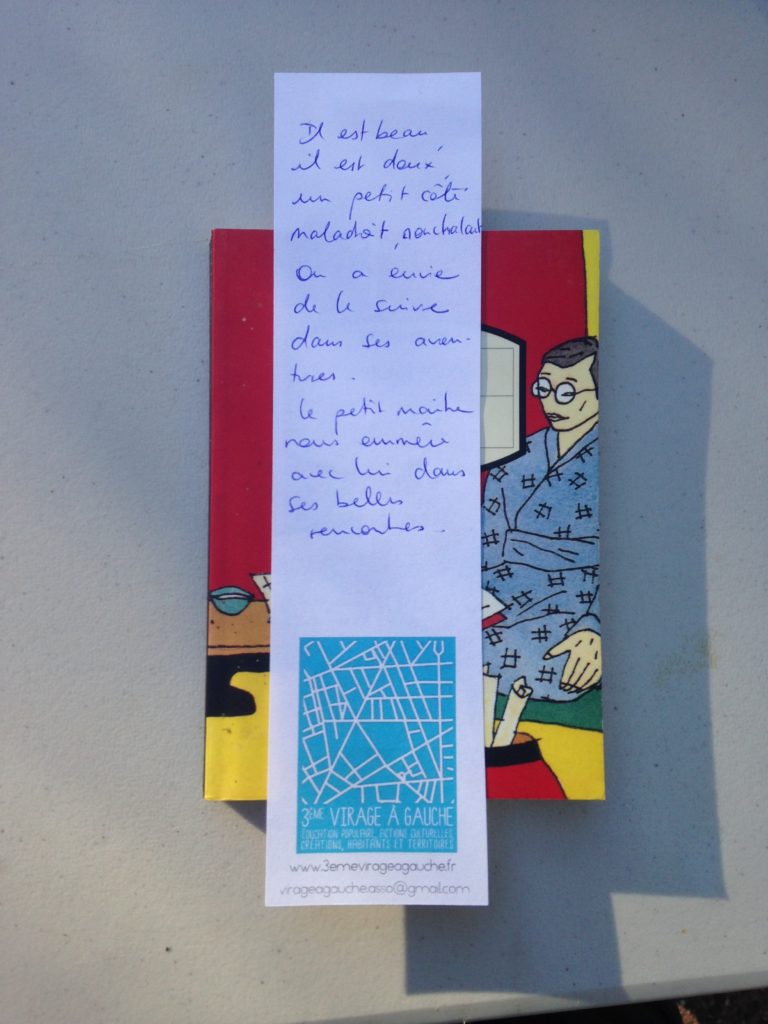 Il est beau,
il est doux,
un petit côté
maladroit, nonchalant
On a envie
de le suivre
dans ses aven-
tures.
Le petit maître
nous emmène
avec lui dans
ses belles
rencontres.
3ÈME VIRAGE À GAUCHE
ÉDUCATION POPULAIRE, ACTIONS CULTURELLES,
CRÉATIONS, HABITANTS ET TERRITOIRES
www.3emevirageagauche.fr
virageagauche.asso@gmail.com